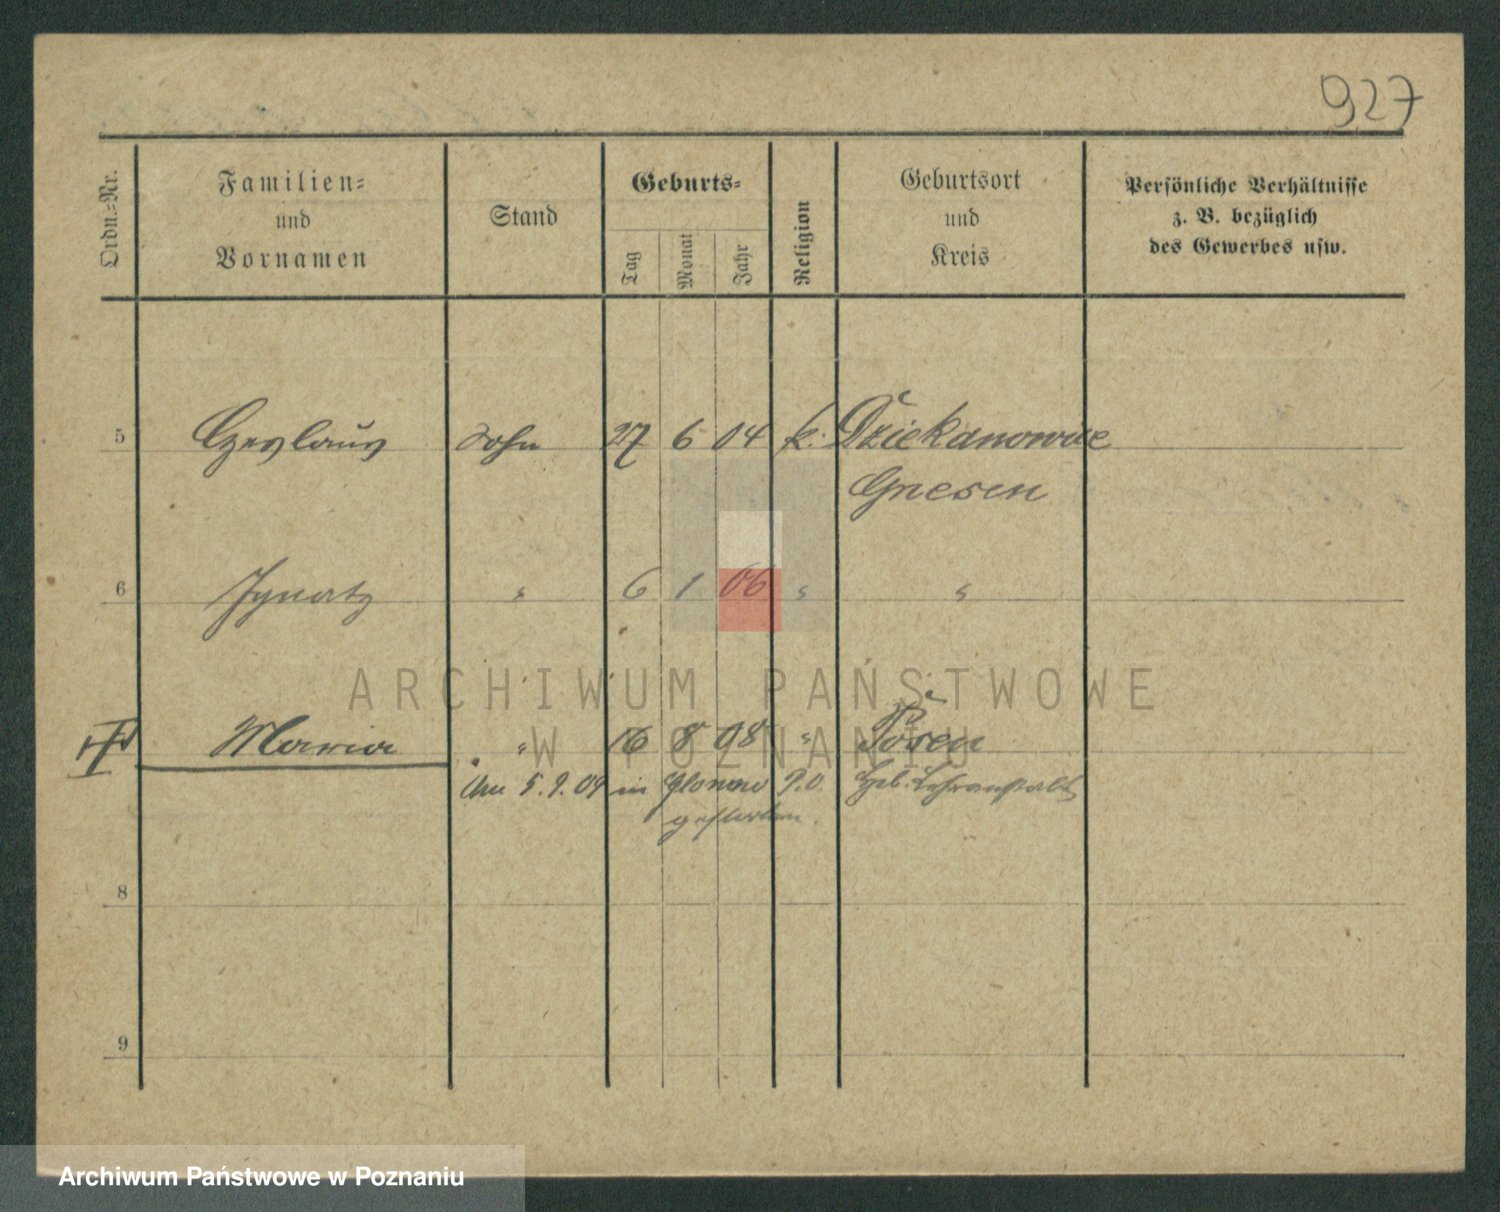 927
Ordn.-Nr. Familien- und Vornamen Stand Geburts- Tag Monat Jahr Religion Geburtsort und Kreis Persönliche Verhältnisse z. B. bezüglich des Gewerbes usw.
5 Czeslaus Sohn 27 6 04 k. Dziekanowice
Gnesen
6 Ignatz " 6 1 06 " "
ARCHIWUM PAŃSTWOWE
W POZNANIU
Maria " 16 8 08 " Posen
Am 5. 9. 09 in Glowno P.O. Heb. Lehranstalt
gestorben.
8
9
Archiwum Państwowe w Poznaniu